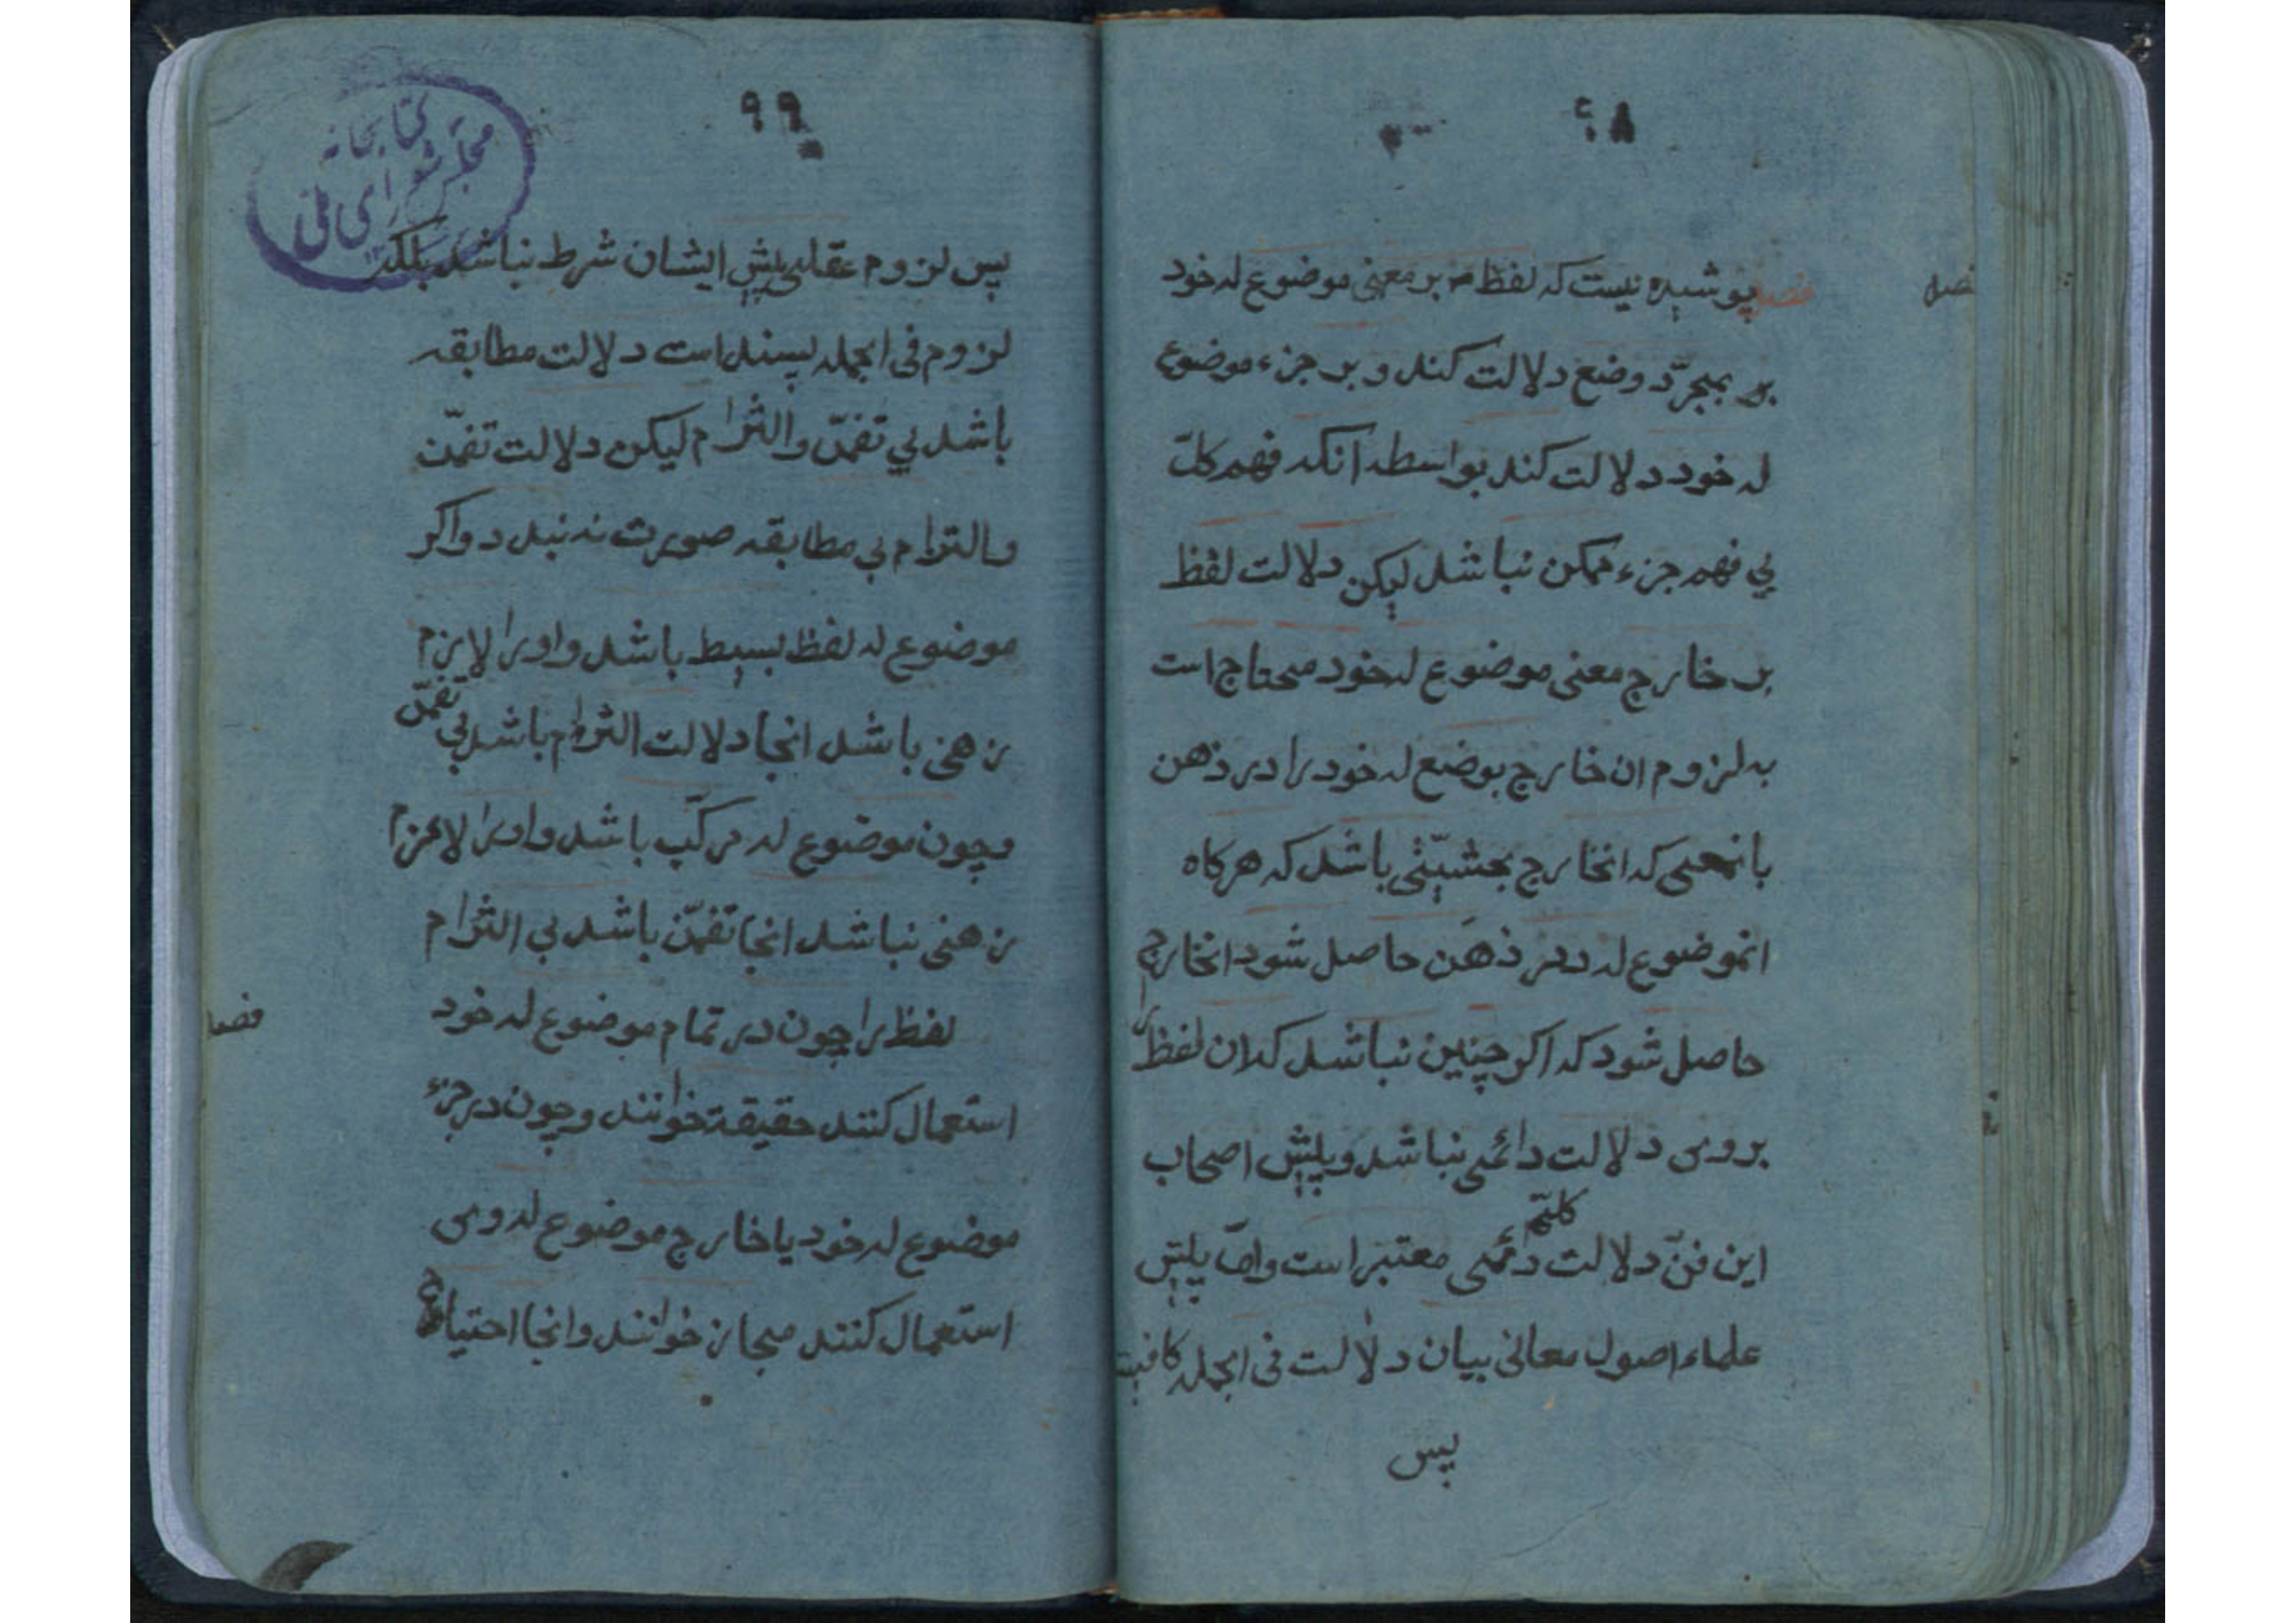 ۶۸
فصل
فصل پوشیده نیست که لفظ بر معنی موضوع له خود
بر بمجرّد وضع دلالت کند و بر جزء موضوع
له خود دلالت کند بواسطه آنکه فهم کلّ
بي فهم جزء ممکن نباشد لیکن دلالت لفظ
بر خارج معنی موضوع له خود محتاج است
به لزوم ان خارج بوضع له خود را در ذهن
بانمعنی که انخارج بحشیّتی باشد که هرکاه
انموضوع له در ذهن حاصل شود انخارج
حاصل شود که اکر چنین نباشد که ان لفظ را
بروی دلالت دائمی نباشد و پیش اصحاب
این فنّ دلالت کلیّه دائمی معتبر است وامّا پیش
علماء اصول معانی بیان دلالت فی الجمله کافیست
پس
۶۹
کتابخانه
مجلس شورای ملی
پس لزوم عقلی پیش ایشان شرط نباشد بلکه
لزوم فی الجمله پسند است دلالت مطابقه
باشد بي تضمّن والتزام لیکن دلالت تضمّن
والتزام بي مطابقه صورت نه نبدد واکر
موضوع له لفظ بسیط باشد واورا لازم
زهنی باشد انجا دلالت التزام باشد بي تضمّن
وچون موضوع له مرکّب باشد واورا لازم
زهنی نباشد انجا تضمّن باشد بي التزام
فصل
لفظ را چون در تمام موضوع له خود
استعمال کنند حقیقة خوانند وچون در جزء
موضوع له خود یا خارج موضوع له وی
استعمال کنند مجاز خوانند وانجا احتیاج